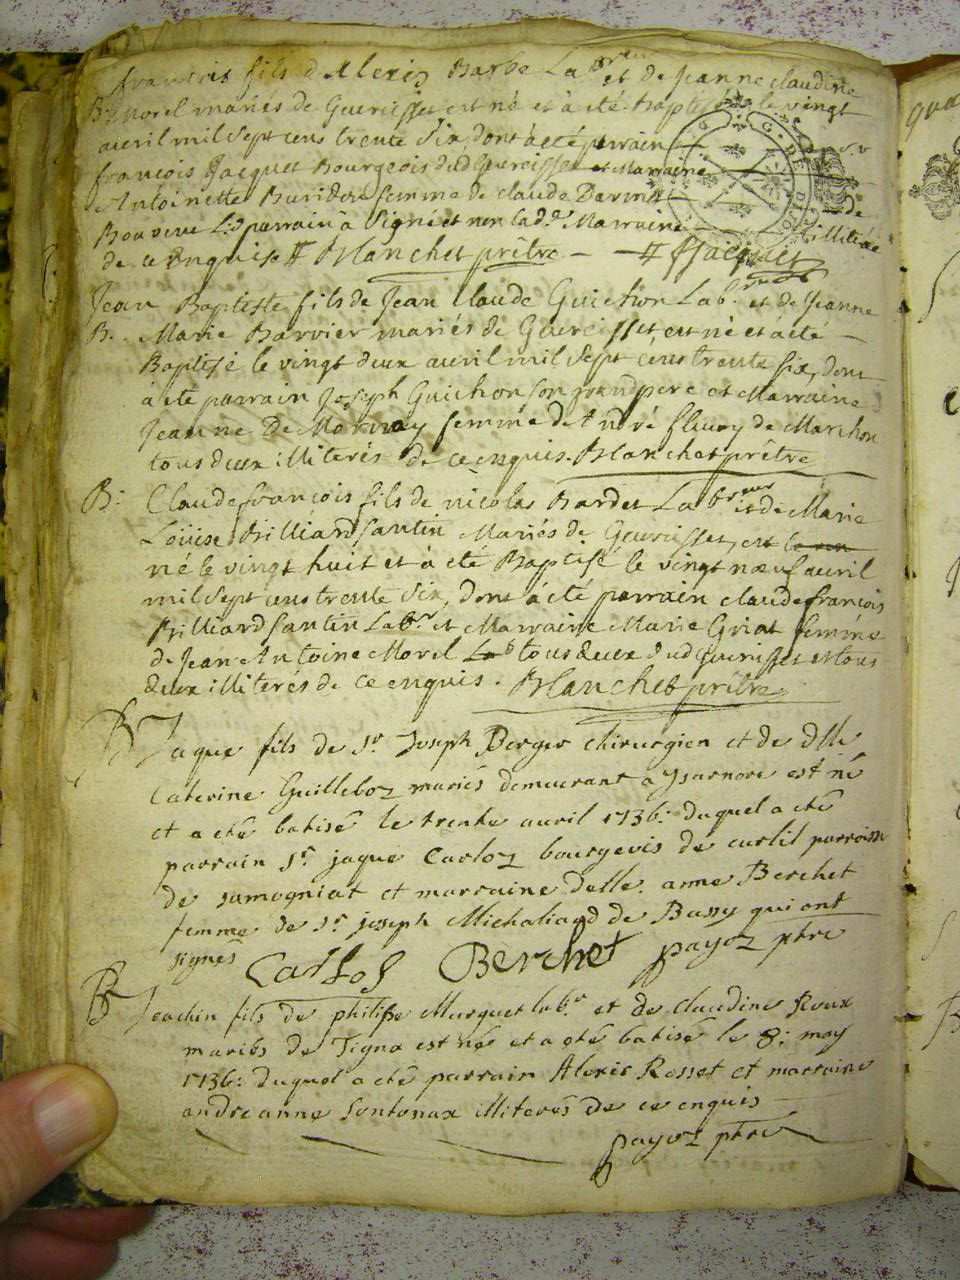 françois fils d'Alexis Barbe Lab.reur et de Jeanne claudine
B: Morel mariés de Guereisset est né et à été baptisé le vingt
avril mil sept cens trente six, dont à été parrain
françois Jacquet Bourgeois dud Guereisset et Marraine
Antoinette femme de claude
parrain à signé et non lad.e Marraine illiterée
de ce enquise # Blanchet prêtre — # fJacquet
Jean Baptiste fils de Jean Claude Guichon Lab.r et de Jeanne
B. Marie Barvier mariés de Guereisset est né et à été
Baptisé le vingt deux avril mil sept cens trente six, dont
à été parrain Joseph Guichon son grand pere et Marraine
Jeanne De Mornay femme d'André fleury de Marchon
tous deux illiterés de ce enquis. Blanchet prêtre
B: Claude françois fils de nicolas Bardet Lab.reur et de Marie
Loüise Billiard Santin Mariés de Guereisset, est
né le vingt huit et à été Baptisé le vingt nœuf avril
mil sept cens trente six, dont à été parrain claude françois
Billiard Santin Lab.r et Marraine Marie Griat femme
de Jean Antoine Morel Lab tous deux dud Guereisset et tous
deux illiterés de ce enquis. Blanchet prêtre
B Jaque fils de s.r Joseph Berger chirurgien et de dlle
Caterine Guilleboz mariés demeurant a ysarnore est né
et a eté batisé le trente avril 1736: duquel a eté
parrain s.r jaque Carloz bourgeois de curtil parroisse
de samogniat et marraine delle. anne Berchet
femme de s.r joseph Michaliaud de Bussy qui ont
signés Carlos Berchet payoz ptre
B Joachin fils de philipe Murguet lab.r et de claudine Roux
mariés de Tigna est né et a eté batisé le 8: may
1736: duquel a eté parrain Alexis Rosset et marraine
andreanne Sontonax illiterés de ce enquis
payoz ptre